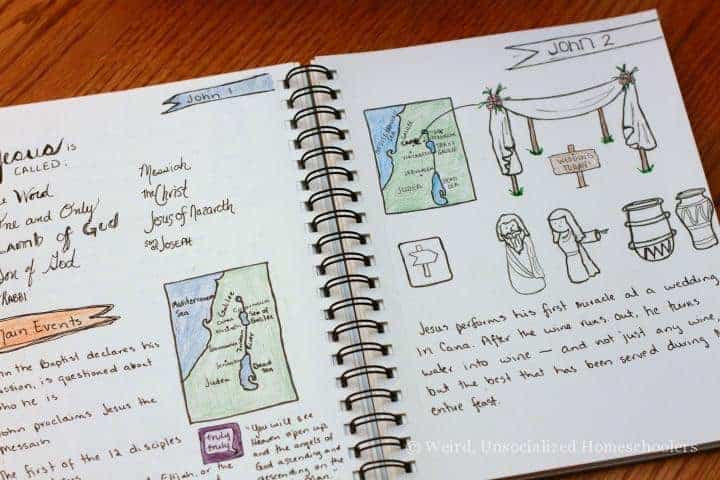 John 1
Jesus IS
CALLED:
Word
ne and Only
Lamb of God
on of God
RABBI
Messiah
the Christ
Jesus of Nazareth
JOSEPH
Mediterranean
Sea
Galilee
Sea of
Galilee
Judea
Dead
Sea
Main Events
n the Baptist declares his
ssion, is questioned about
ho he is
John proclaims Jesus the
Messaih
The first of the 12 disciples
Elijah, or the
truly
truly
"You will see
Heaven open up
and the angels of
God ascending and
descending on the
John 2
Galilee
Cana
Judea
Dead
Sea
WEDDING
TODAY
Jesus performs his first miracle at a wedding
in Cana. After the wine runs out, he turns
water into wine — and not just any wine,
but the best that has been served during t
entire feast.
© Weird, Unsocialized Homeschoolers